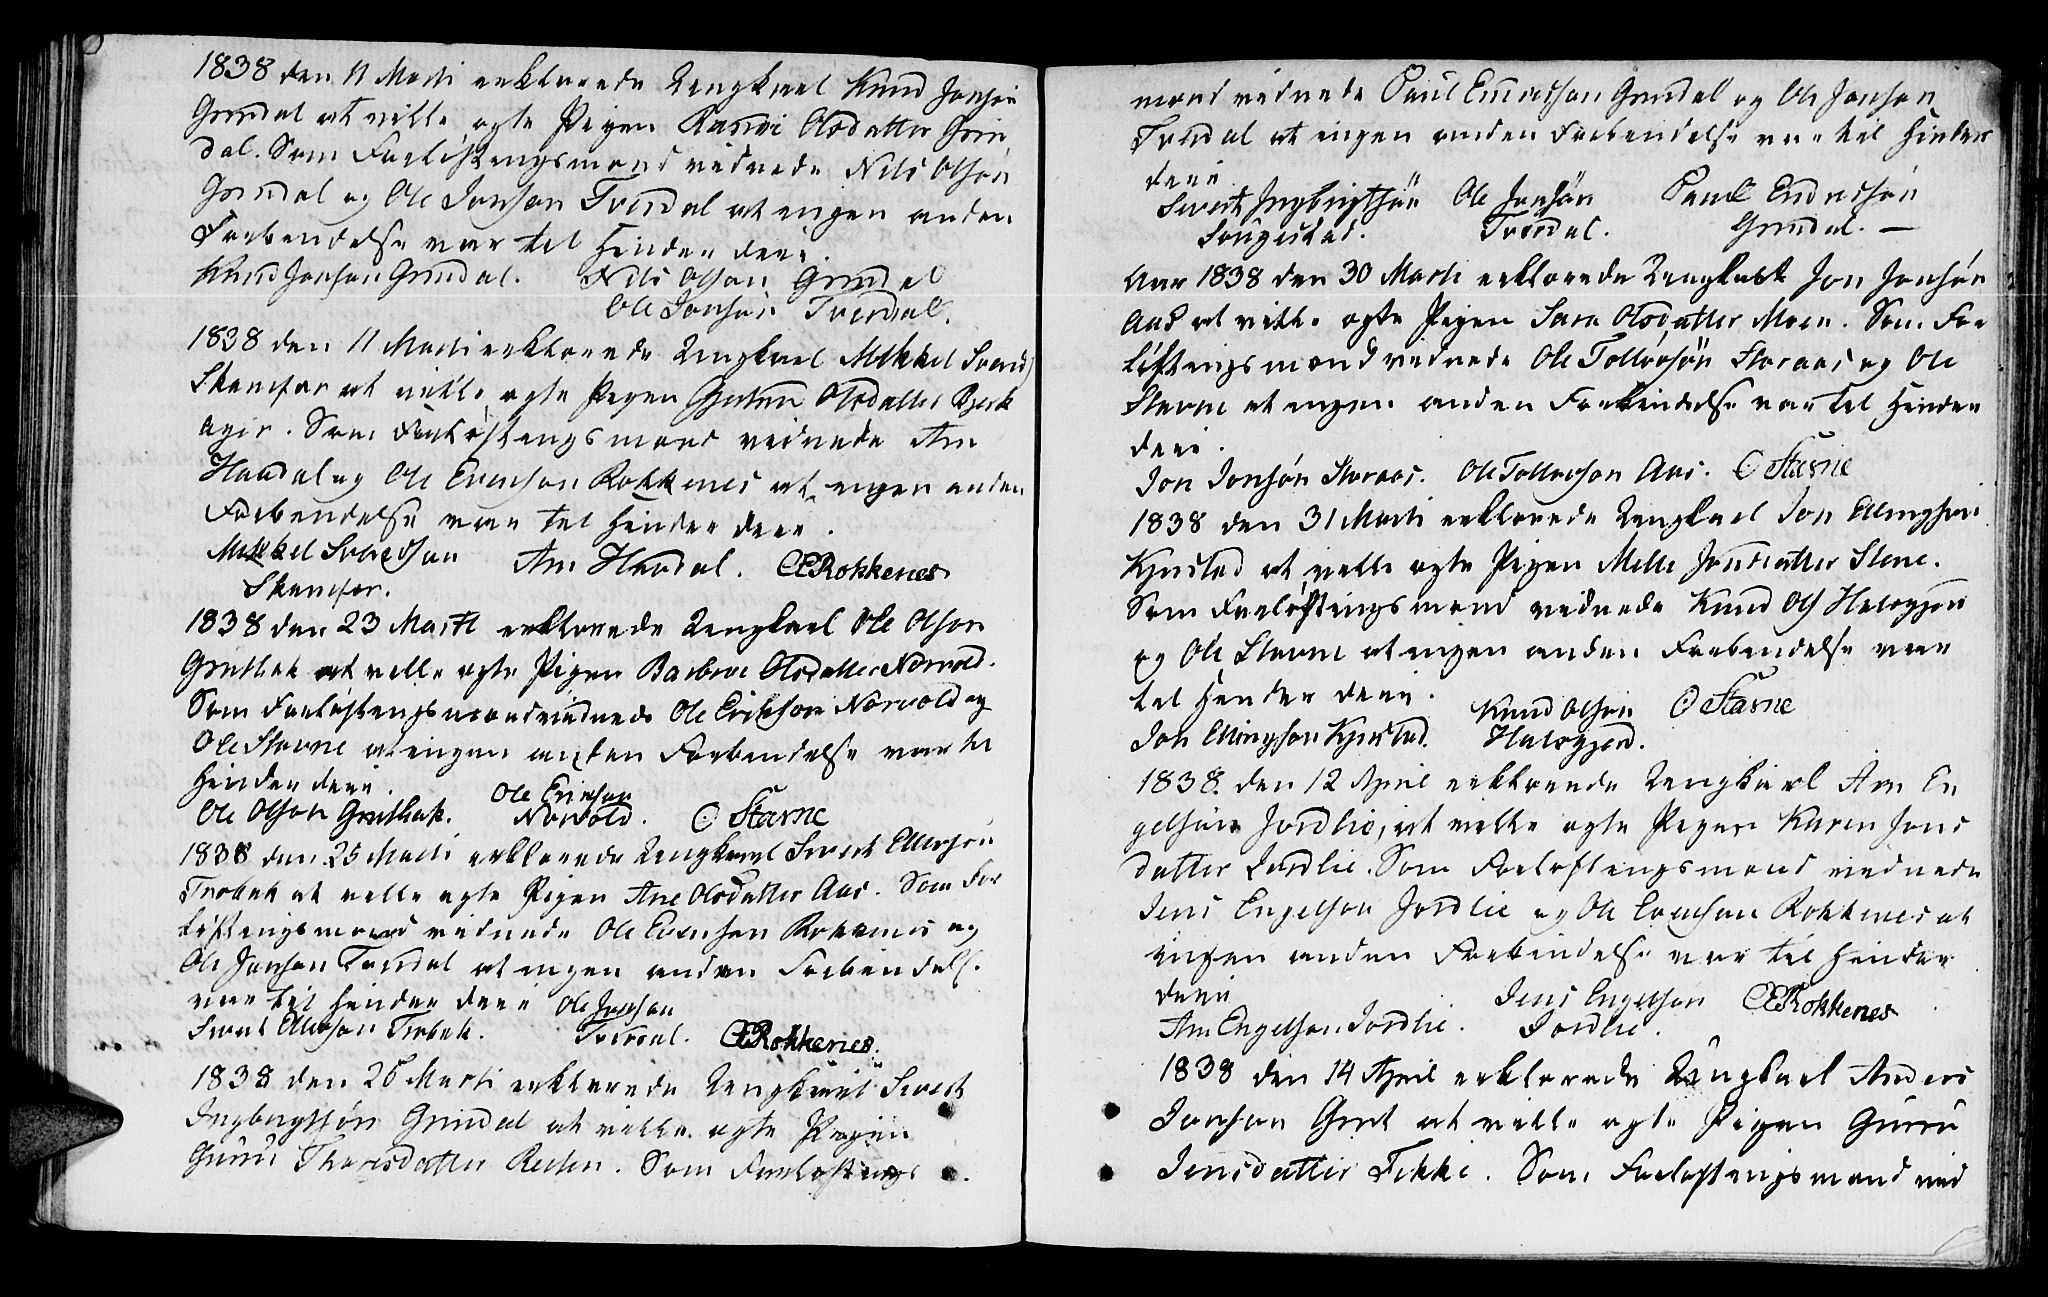 1838 den 11 Marti erklærede Ungkarl Knud Jonsøn
Grindal at ville ægte Pigen Rannei Olsdatter Grin
dal. Som Forløftningsmænd vidnede Nils Olsøn
Grindal og Ole Jonson Tverdal at ingen anden
Forbindelse var til Hinder deri.
Knud Jonson Grindal. Nils Olson Grindal
Ole Jonsøn Tverdal.
1838 den 11 Marti erklærede Ungkarl Mikkel Svends
Skamfer at ville ægte Pigen Olsdatter Berk
ager. Som Forløftningsmænd vidnede Arn
Havdal og Ole Evenson Rokkenes at ingen anden
Forbindelse var til Hinder deri.
Mikkel Svendson Arn Havdal. OERokkenes
Skamfer.
1838 den 23 Marti erklærede Ungkarl Ole Olson
Gruthak at ville ægte Pigen Barbroe Olsdatter Norvold.
Som Forløftningsmænd vidnede Ole Erikson Norvold og
Ole Stavne at ingen anden Forbindelse var til
Hinder deri. Ole Erikson
Ole Olson Gruthak. Norvold. O Stavne
1838 den 25 Marti erklærede Ungkarl Sivert Ellevsøn
Trobak at ville ægte Pigen Ane Olsdatter Aas. Som For
løftningsmænd vidnede Ole Evensen Rokkenes og
Ole Jonson Tverdal at ingen anden Forbindelse
var til Hinder deri Ole Jonson
Sivert Ellevson Trobak. Tverdal. OERokkenes.
1838 den 25 Marti erklærede Ungkarl Sivert
Ingbrigtsøn Grindal at ville ægte Pigen
Guru Thoresdatter. Som Forløftnings
mænd vidnede Paul Endretson Grindal og Ole Jonson
Tverdal at ingen anden Forbindelse var til Hinder
deri
Sivert Ingbrigtsøn Ole Jonsøn Paul Endretsøn
Tverdal. Grindal.
Aar 1838 den 30 Marti erklærede Ungkarl Jon Jonsøn
Aas at ville ægte Pigen Sara Olsdatter Moen. Som For
løftningsmænd vidnede Ole Tollevsøn Storaas og Ole
Stavne at ingen anden Forbindelse var til Hinder
deri.
Jon Jonsøn Storaas. Ole Tollevson Aas. O Stavne
1838 den 31 Marti erklærede Ungkarl Jon Ellingson
Kjerstad at ville ægte Pigen Mette Jonsdatter Stene.
Som Forløftningsmænd vidnede Knud Ols Halsgjerd
og Ole Stavne at ingen anden Forbindelse var
til Hinder deri. Knud Olson O Stavne
Jon Ellingson Kjerstad. Halsgjerd.
1838. den 12 April erklærede Ungkarl Arn En
gelsøn Jordlie, at ville ægte Pigen Karen Jons
datter Jordlie. Som Forløftningsmænd vidnede
Jens Engelson Jordlie og Ole Evensen Rokkenes at
ingen anden Forbindelse var til Hinder
deri Jens Engelson OERokkenes
Arn Engelson Jordlie. Jordlie.
1838 den 14 April erklærede Ungkarl Anders
Jonson at ville ægte Pigen Guru
Jensdatter Fikke. Som Forløftningsmænd vid